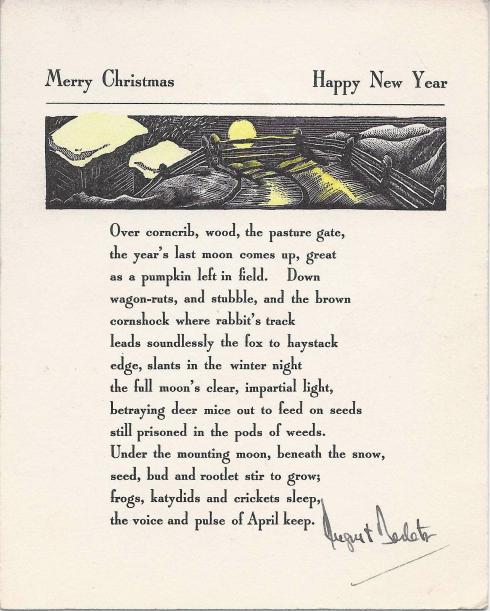 Merry Christmas Happy New Year
Over corncrib, wood, the pasture gate,
the year's last moon comes up, great
as a pumpkin left in field. Down
wagon-ruts, and stubble, and the brown
cornshock where rabbit's track
leads soundlessly the fox to haystack
edge, slants in the winter night
the full moon's clear, impartial light,
betraying deer mice out to feed on seeds
still prisoned in the pods of weeds.
Under the mounting moon, beneath the snow,
seed, bud and rootlet stir to grow;
frogs, katydids and crickets sleep,
the voice and pulse of April keep.
August Derleth